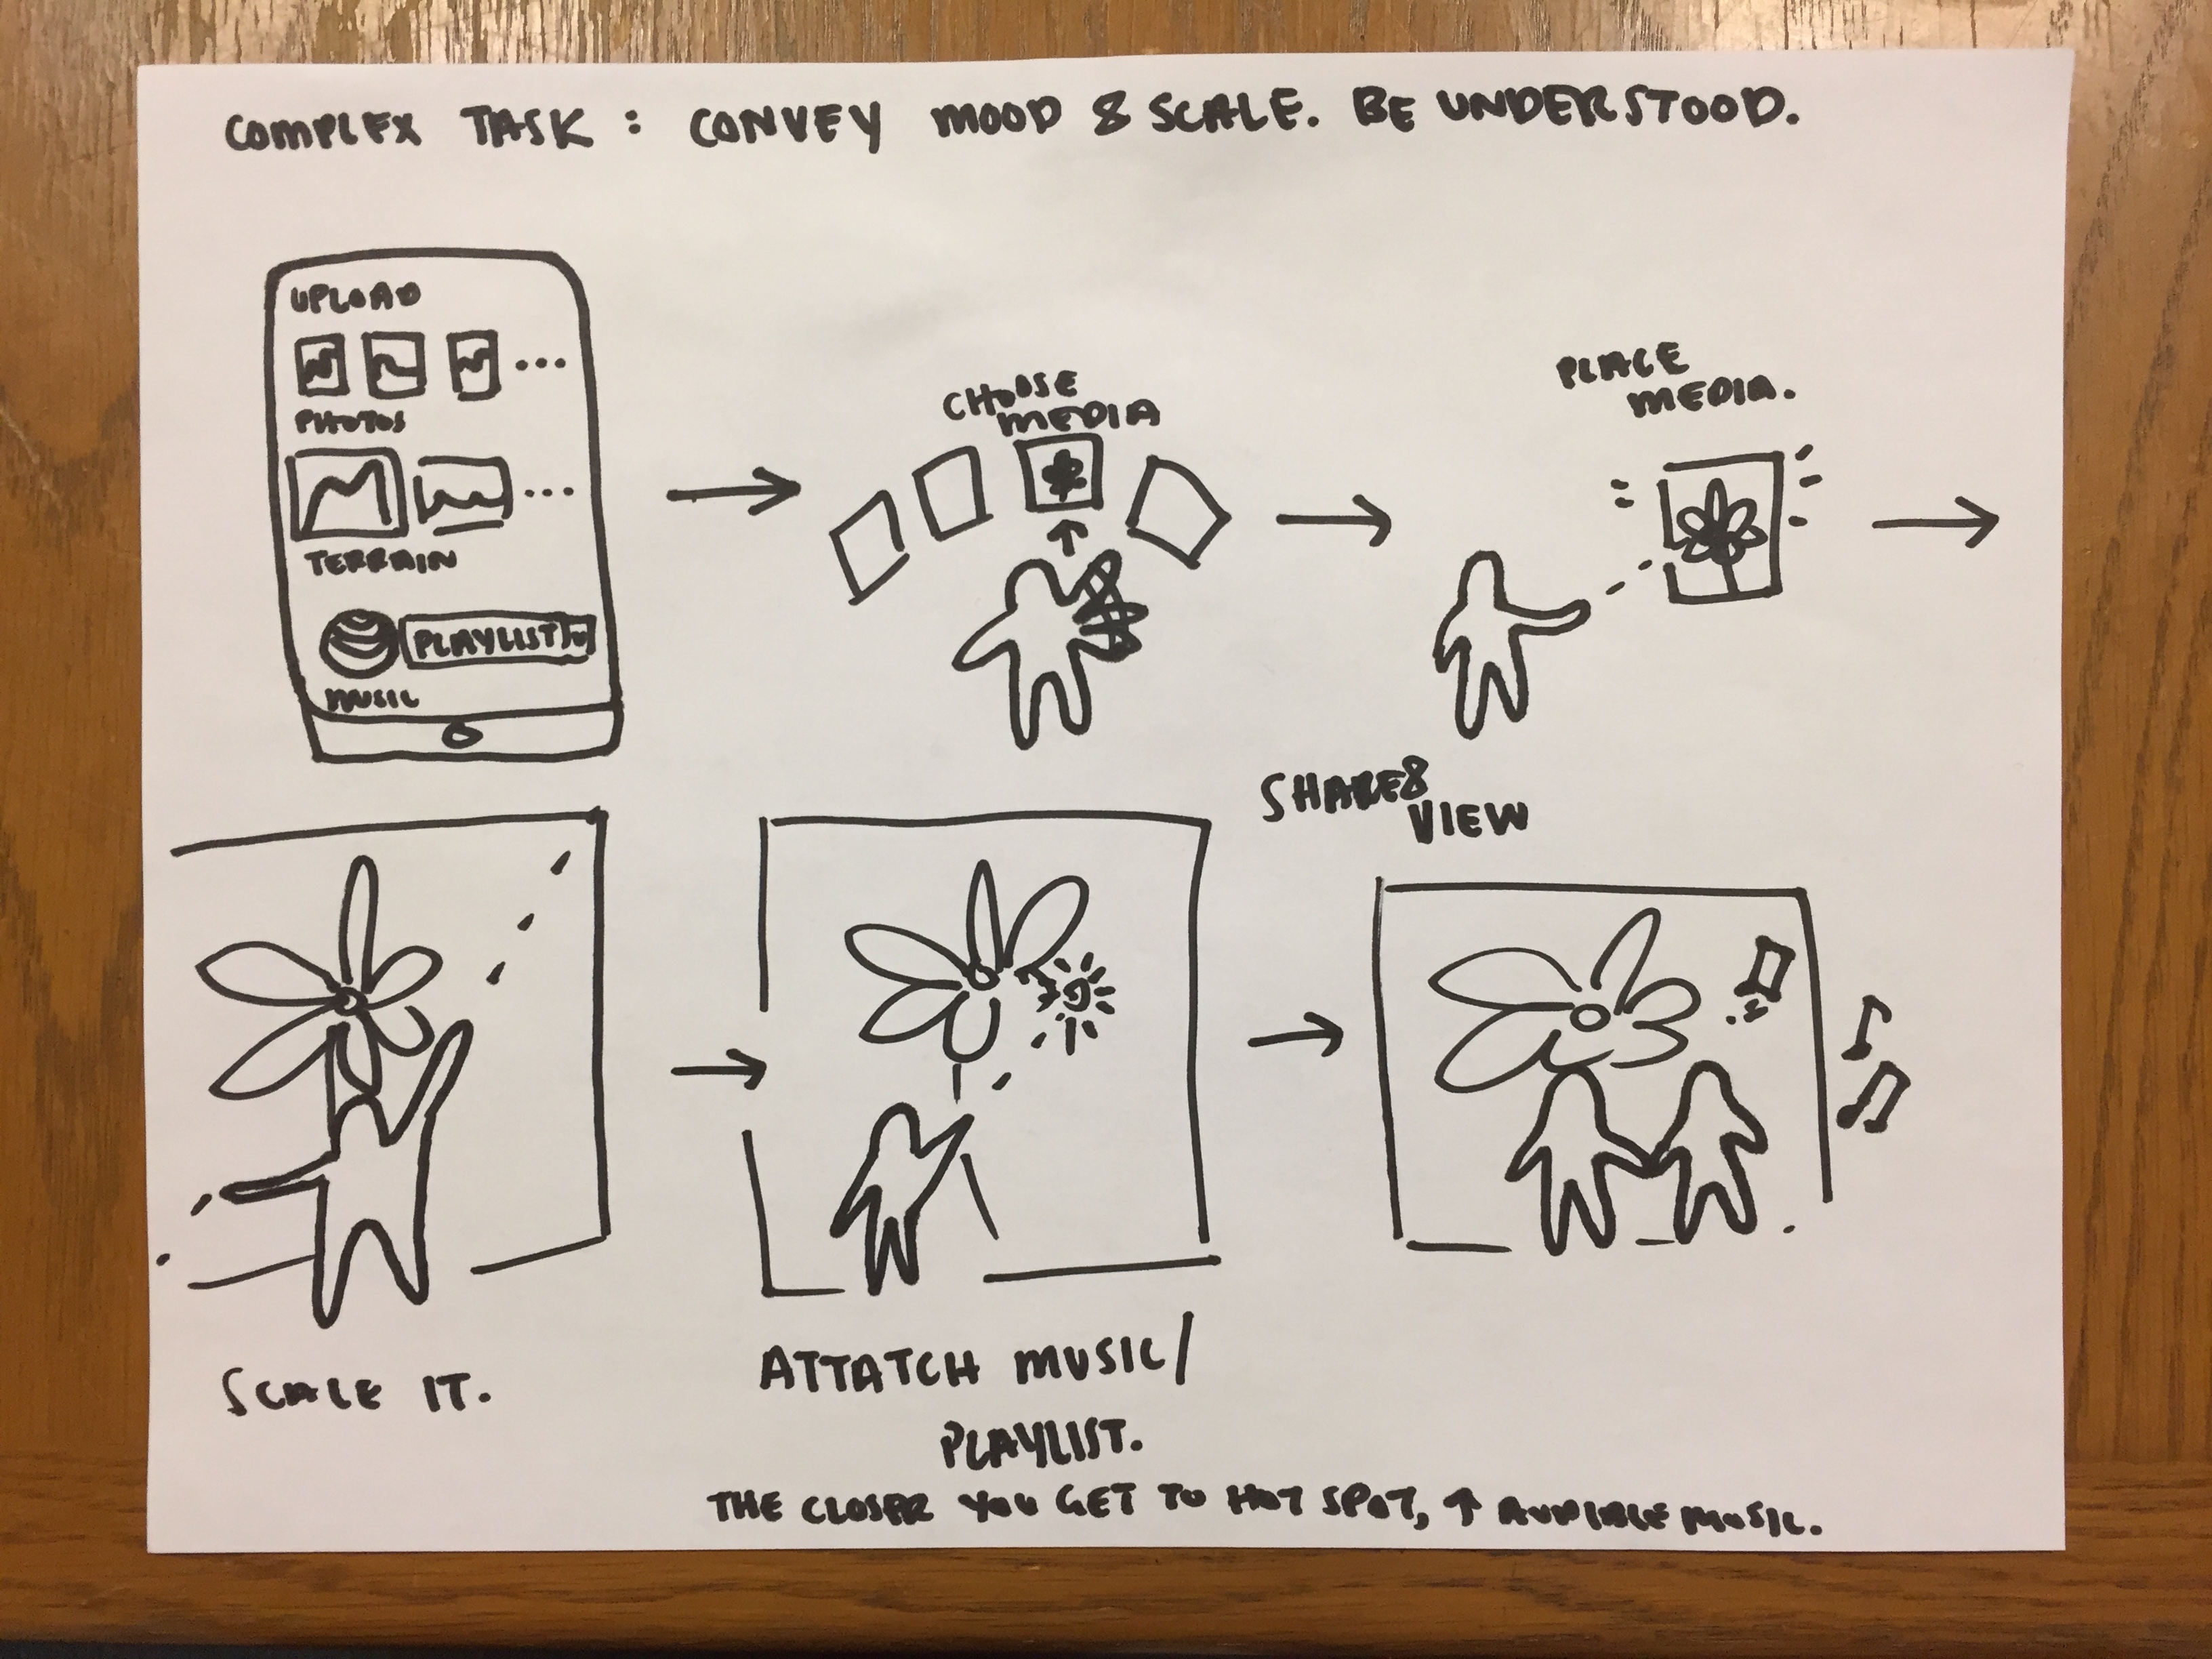 COMPLEX TASK: CONVEY MOOD & SCALE. BE UNDERSTOOD.
UPLOAD
PHOTOS
TERRAIN
PLAYLIST
MUSIC
CHOOSE
MEDIA
PLACE
MEDIA.
SCALE IT.
ATTATCH MUSIC/
PLAYLIST.
THE CLOSER YOU GET TO HOT SPOT, ↑ AUDIABLE MUSIC.
SHARE&
VIEW